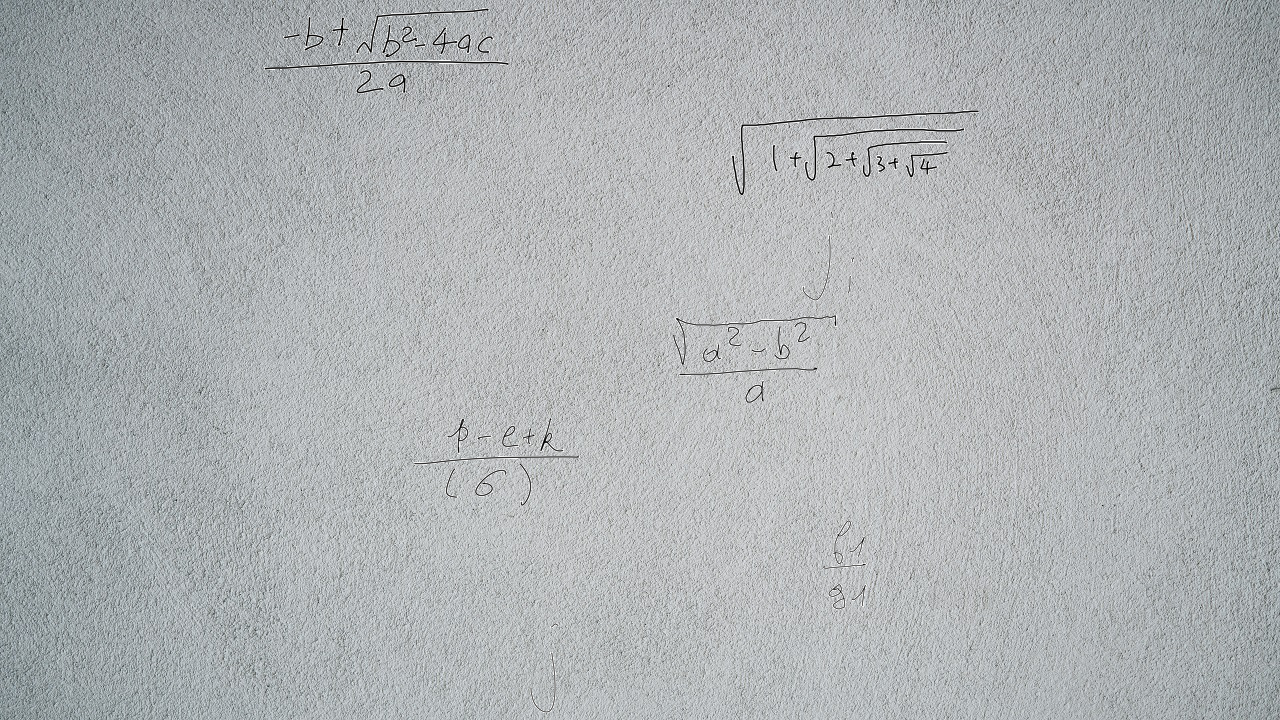 \frac{-b+\sqrt{b^2-4ac}}{2a}
\sqrt{1+\sqrt{2+\sqrt{3+\sqrt{4}}}}
j
\frac{\sqrt{a^2-b^2}}{a}
\frac{p-e+k}{(6)}
\frac{f1}{g1}
j